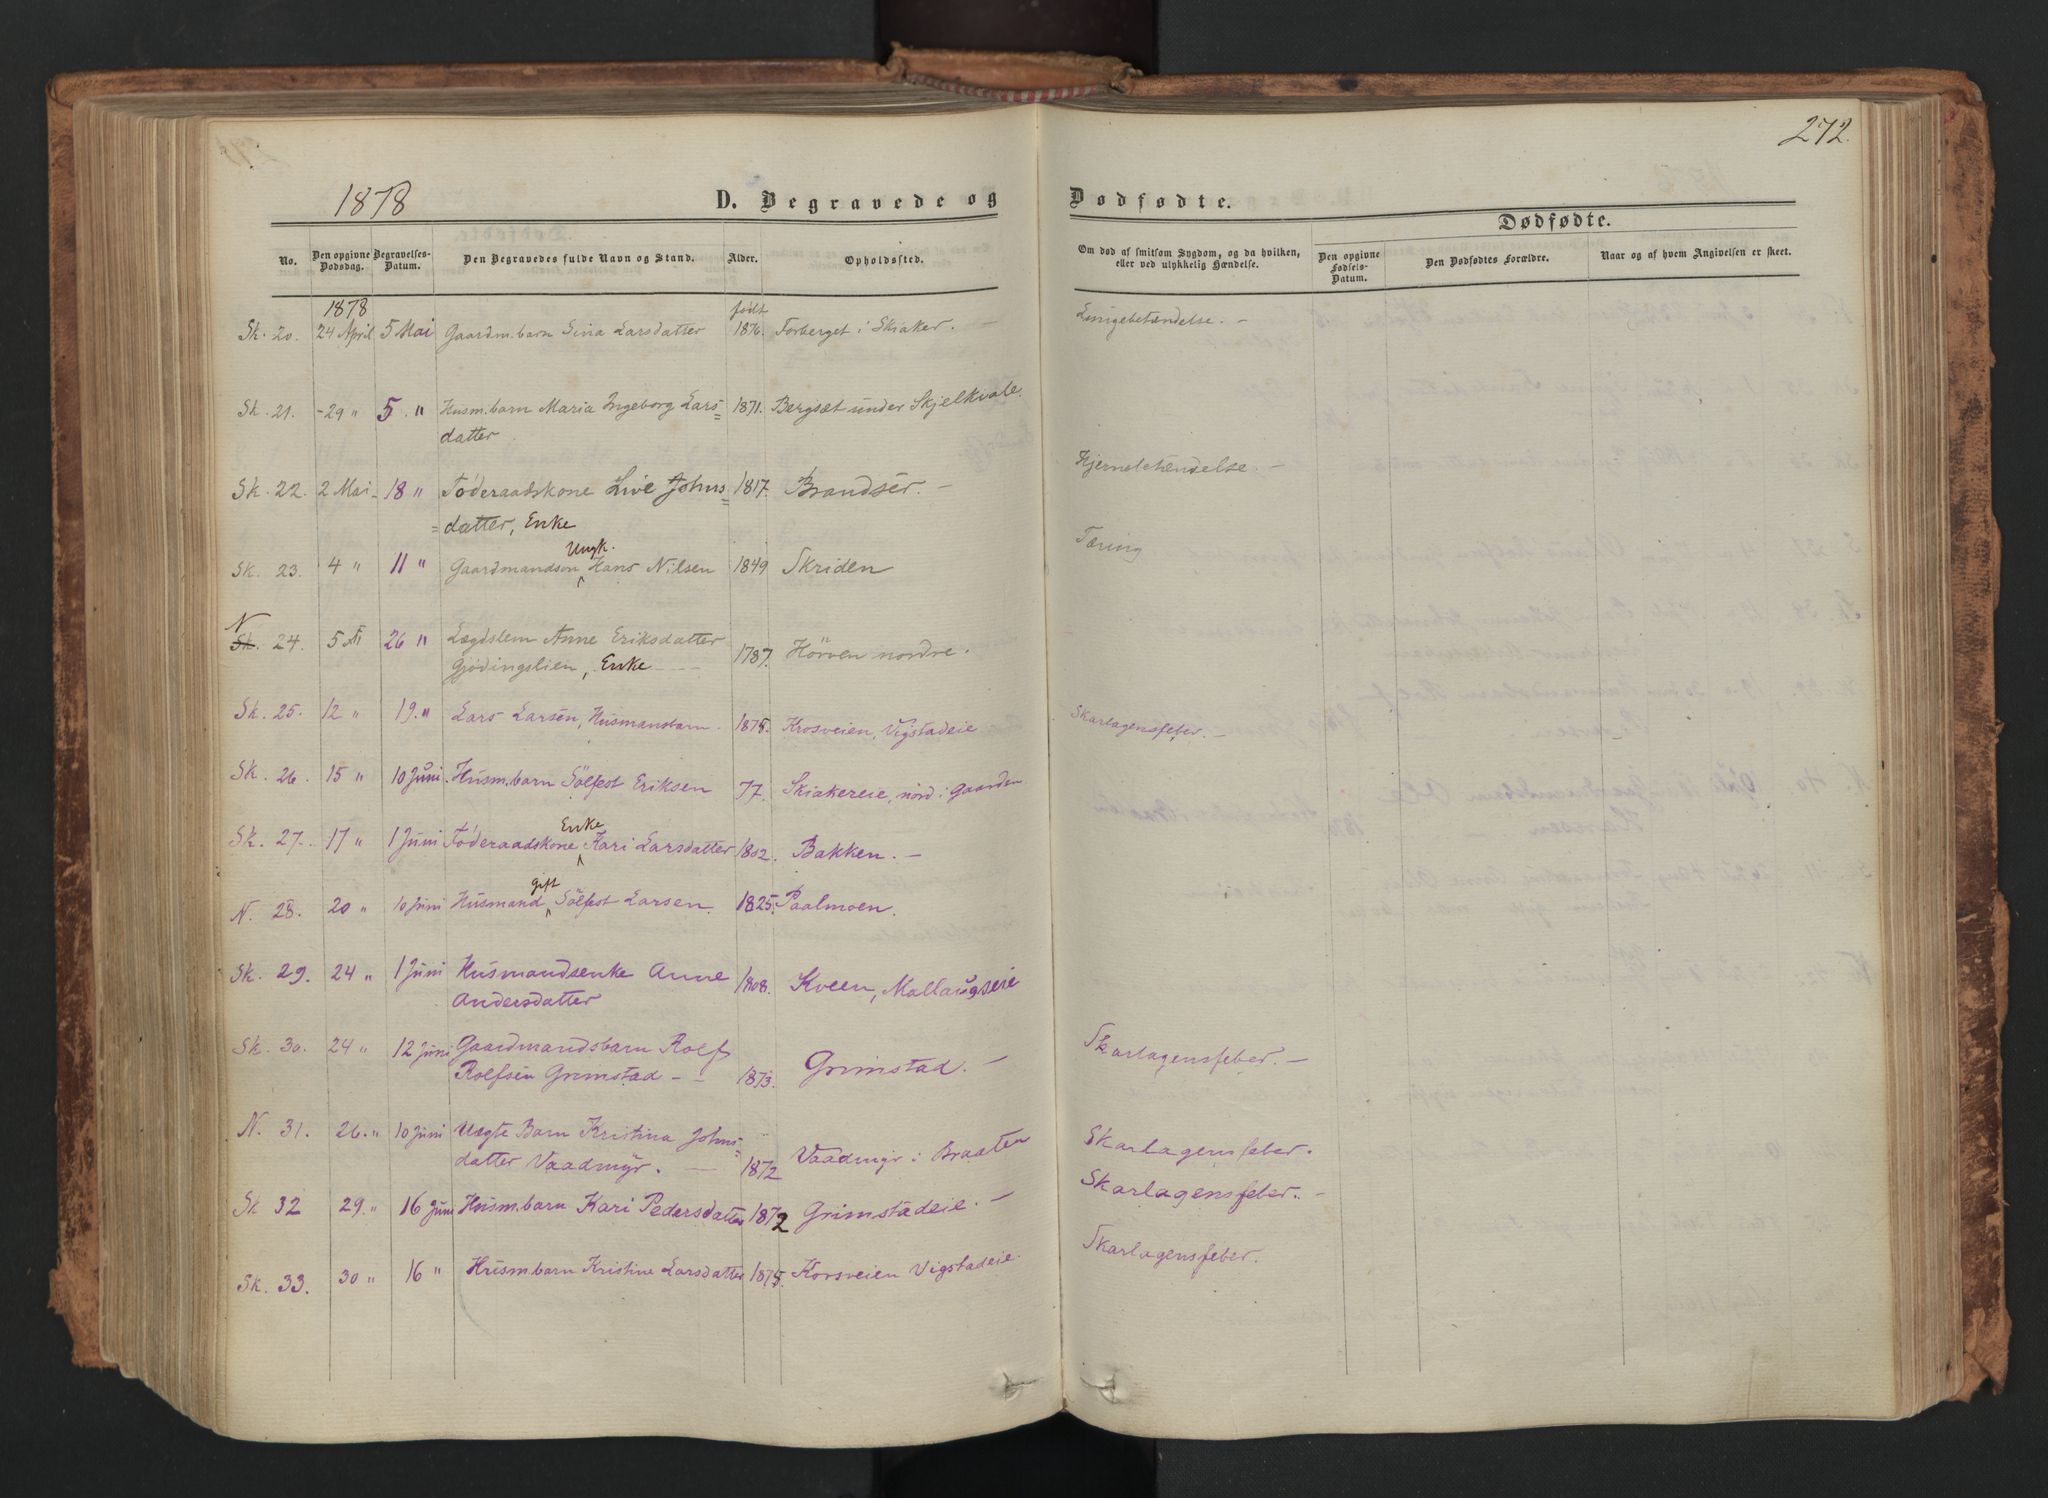 272.
1878
D. Begravede og Dødfødte.
Dødfødte.
No.
Den opgivne Dødsdag.
Begravelses-Datum.
Den Begravedes fulde Navn og Stand.
Alder.
Opholdssted.
Om død af smitsom Sygdom, og da hvilken, eller ved ulykkelig Hændelse.
Den opgivne Fødsels-Datum.
Den Dødfødtes Forældre.
Naar og af hvem Angivelsen er skeet.
1878 født
Sk. 20. 24 April 5 Mai Gaardm.barn Sina Larsdatter 1876. Forberget i Skiaker. — Lungebetændelse. —
Sk. 21. -29 " 5. " Husm.barn Maria Ingeborg Lars= 1871. Bergsæt under Skjelkvale.
datter
Hjernebetændelse. —
Sk. 22. 2 Mai - 18 " Föderaadskone Live Johns= 1817. Brandser. —
=datter, Enke
Ungk. Tæring
Sk. 23. 4 " 11 " Gaardmandsön Hans Nilsen 1849 Skriden
N
Sk. 24. 5 26 " Lægdslem Anne Eriksdatter
Gjödingslien, Enke — 1787. Hörven nordre.
Sk. 25. 12 " 19. " Lars Larsen, Husmansbarn. 1875. Krosveien, Vigstadeie Skarlagensfeber. —
Sk. 26. 15 " 10 Juni. Husm.barn Sölfest Eriksen 77. Skiakereie, nord i Gaarden
Enke
Sk. 27. 17 " 1 Juni Föderaadskone Kari Larsdatter 1802. Bakken. —
gift
N. 28. 20 " 10 Juni Husmand Sölfest Larsen. 1825. Paalmoen.
Sk. 29. 24 " 1 Juni Husmandsenke Anne 1808. Kveen, Mallaugseie
Andersdatter
Sk. 30. 24 " 12 Juni Gaardmandsbarn Rolf
Rolfsen Grimstad — — 1873. Grimstad. — Skarlagensfeber. —
N. 31. 26. " 10 Juni Uægte Barn Kristina Johns=
datter Vaadmyr. — 1872 Vaadmyr i Braaten Skarlagensfeber.
Sk 32 29. " 16 Juni Husm.barn Kari Pedersdatter 1872 Grimstadeie. — Skarlagensfeber. —
Sk. 33. 30 " 16 " Husm.barn Kristine Larsdatter 1875. Korsveien Vigstadeie. Skarlagensfeber.